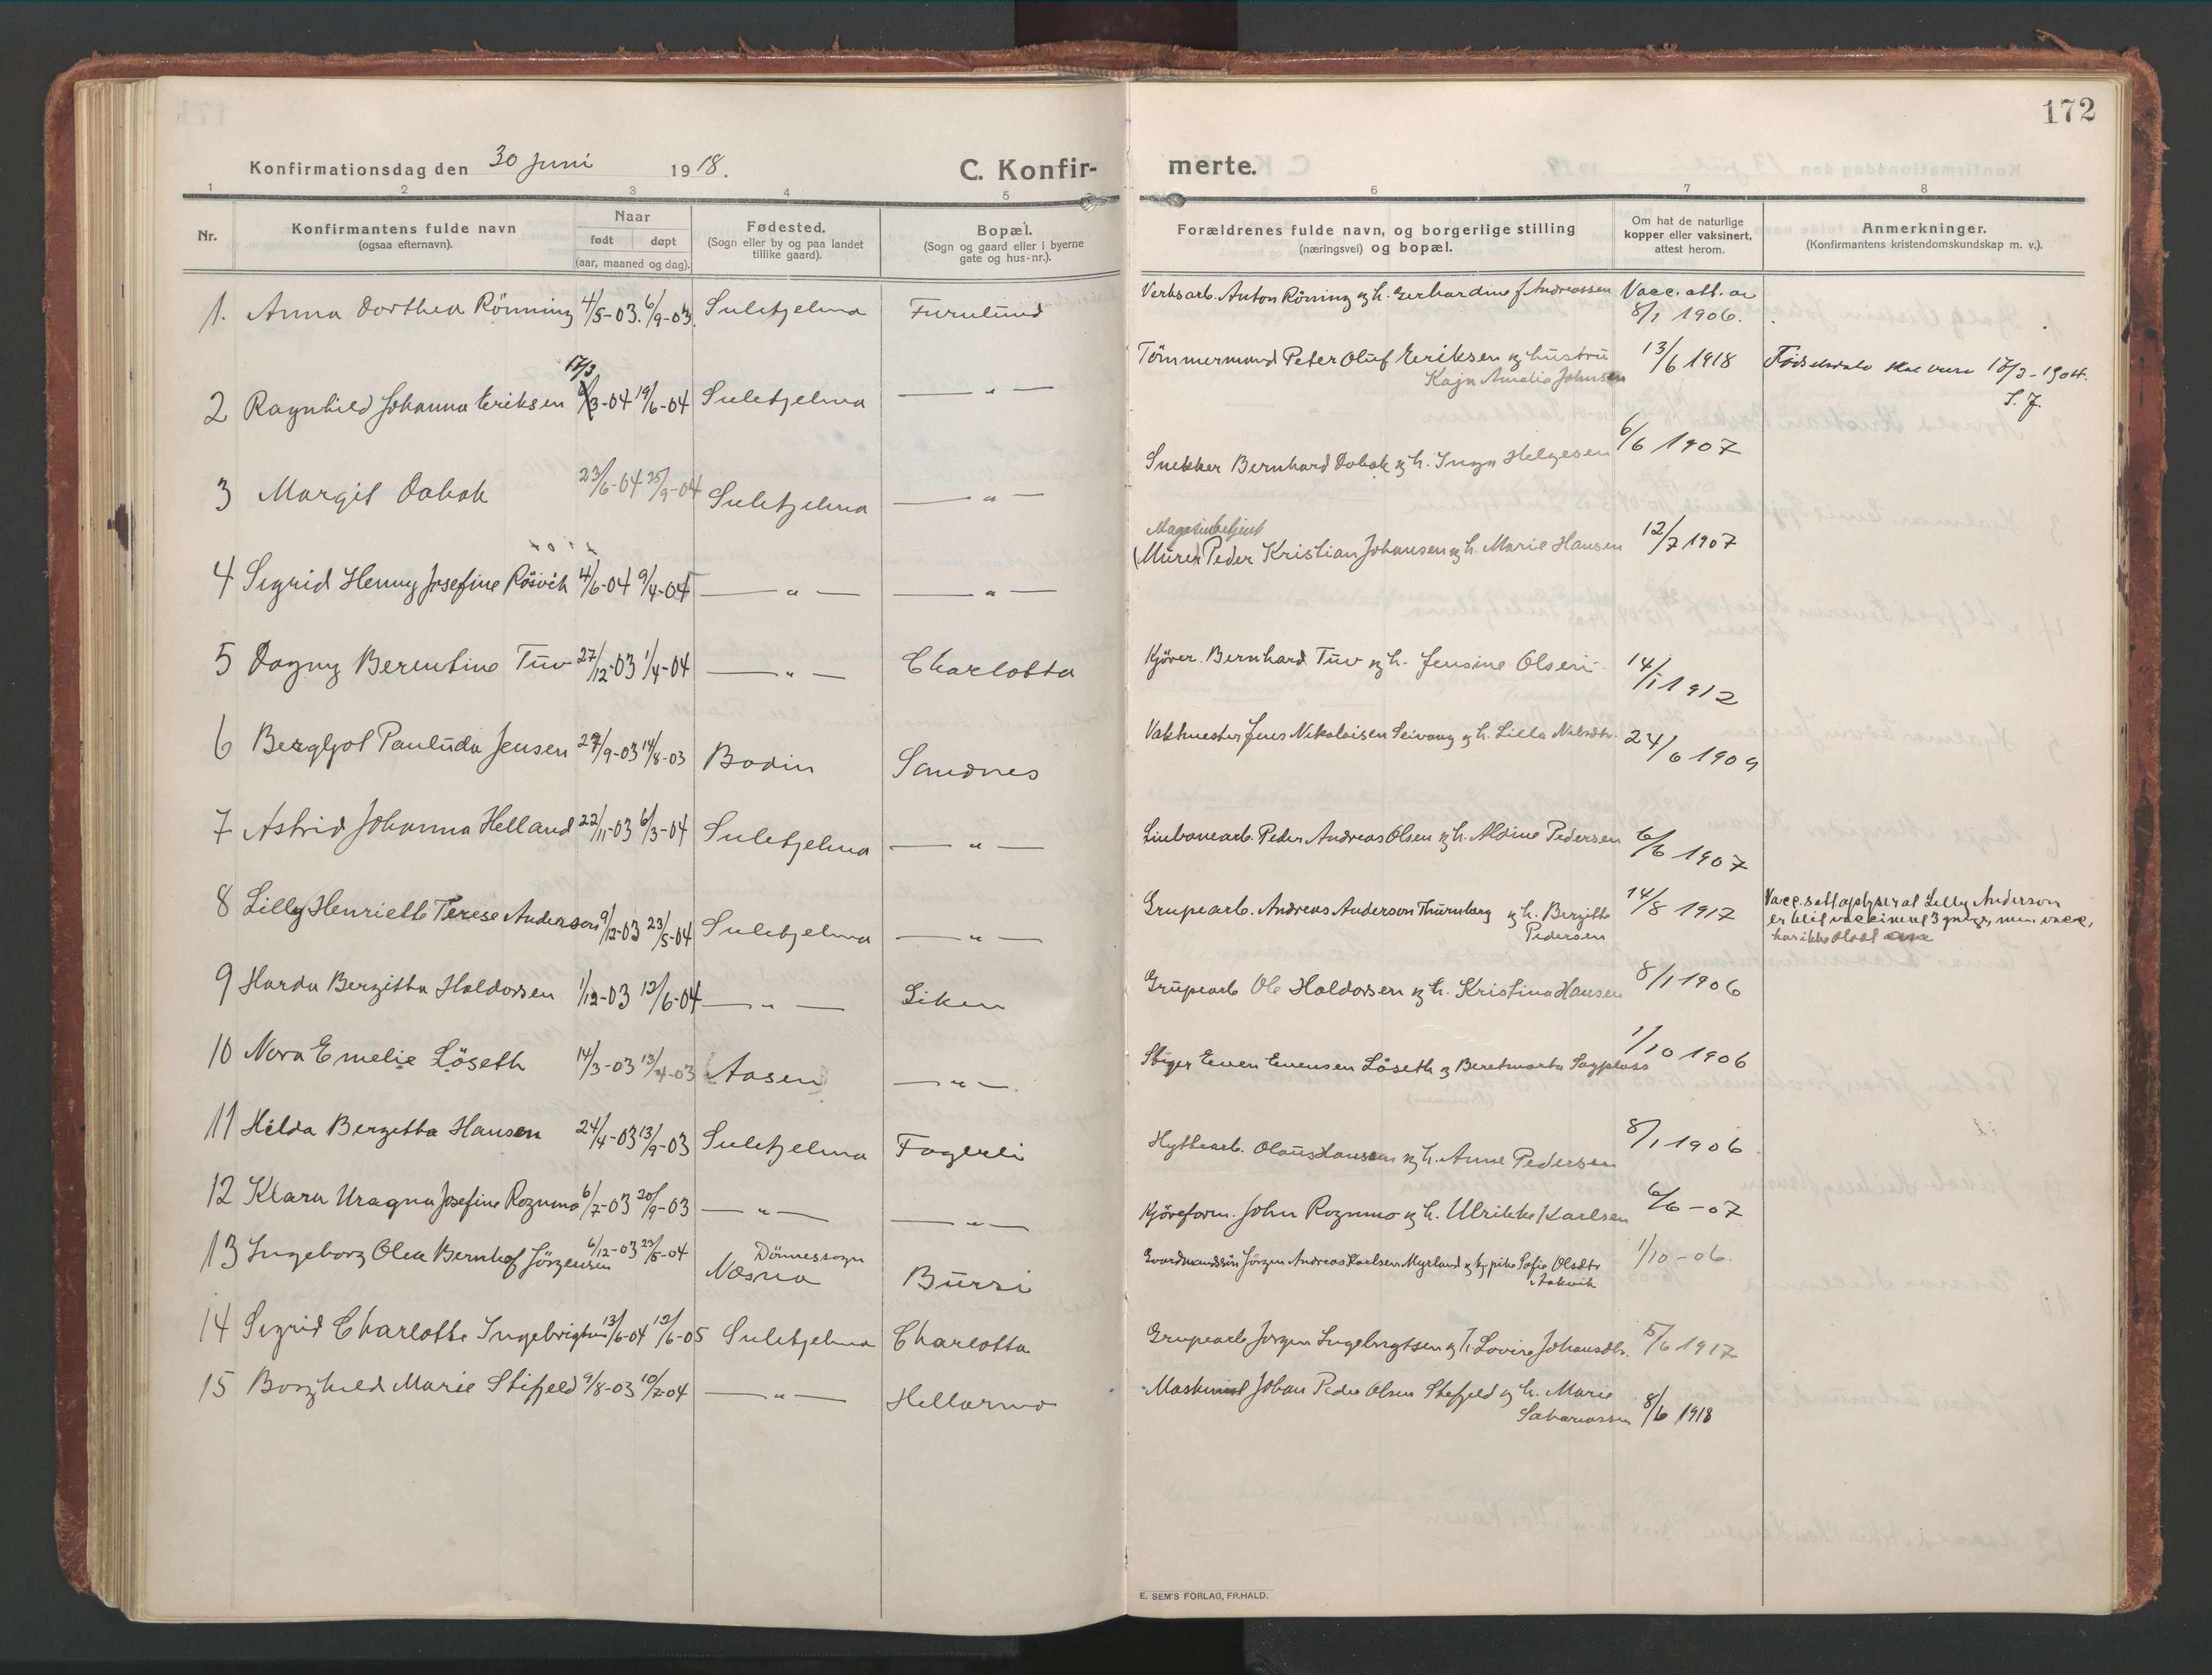 172
Konfirmationsdag den 30 juni 1918. C. Konfir- merte.
1 2 3 4 5 6 7 8
Nr.
Konfirmantens fulde navn
(ogsaa efternavn).
Naar
født døpt
(aar, maaned og dag).
Fødested.
(Sogn eller by og paa landet
tillike gaard).
Bopæl.
(Sogn og gaard eller i byerne
gate og hus-nr.).
Forældrenes fulde navn, og borgerlige stilling
(næringsvei) og bopæl.
Om hat de naturlige
kopper eller vaksinert,
attest herom.
Anmerkninger.
(Konfirmantens kristendomskundskap m. v.).
1. Anna Dorthea Rönning 4/5-03. 6/9-03. Sulitjelma Furulund Verksarb. Anton Röning og h. Gerhardine f Andreassen Vacc. att. av
8/1 1906.
17/3
2 Ragnhild Johanna Eriksen /3-04 19/6-04 Sulitjelma — " — Tömmermand Peter Oluf Eriksen og hustru 13/6 1918 Födselsdato skal være 17/3-1904.
Kaja Amalia Johnsen S. J.
3 Margit Dobak 23/6-04 25/9-04 Sulitjelma — " — Snekker Bernhard Dobak og h. Inga Helgesen 6/6 1907
Magasinbetjent
4 Sigrid Henny Josefine Rösvik 4/6-04 9/4-05 — " — — " — (Murer Peder Kristian Johansen og h. Marie Hansen 12/7 1907
5 Dagny Berentine Tuv 27/12-03 1/4-04 — " — Charlotta Kjörer. Bernhard Tuv og h. Jensine Olsen. 14/1 1912
6 Bergljot Paulüda Jensen 29/9-03 14/8-03 Bodin Sandnes Vaktmester Jens Nikolaisen Seivaag og h. Lilla Nilsdtr. 24/6 1909
7 Astrid Johanna Helland 22/11-03 6/3-04 Sulitjelma — " — Linbanearb. Peder Andreas Olsen og h. Aldine Pedersen 6/6 1907
8 Lilly Henriette Terese Anderson 9/12-03 23/5-04 Sulitjelma — " — Grupearb. Andreas Anderson Thurnberg og h. Bergitte 14/8 1917 Vacc. att oplyser at Lilly Anderson
Pedersen er blit vaccineret 3 ganger, men vacc.
har ikke slaat
9 Harda Bergitta Haldorsen 1/12-03 12/6-04 — " — Liken Grupearb Ole Haldorsen og h. Kristina Hansen 8/1 1906
10 Nora Emelie Löseth 14/3-03 13/4-03 Aasen — " — Stiger Even Evensen Löseth og Beretmarta Sagplass 1/10 1906
11 Hilda Bergetta Hansen 24/4-03 13/9-03 Sulitjelma Fagerli Hyttearb. Olaus Hansen og h. Anne Pedersen 8/1 1906
12 Klara Uragna Josefine Rognmo 6/7-03 20/9-03 — " — — " — Kjöreform. John Rognmo og h. Ulrikke Karlsen 6/6-07
13 Ingeborg Olea Bernhof Jörgensen 6/12-03 23/5-04 Dönnes sogn
Nesna Bursi Gaardmandssön Jörgen Andreas Karlsen Myrland og pike Sofie Olsdtr 1/10-06.
Aakvik
14 Sigrid Charlotte Ingebrigtsen 13/6-04 12/6-05 Sulitjelma Charlotta Grupearb Jorgen Ingebrigtsen og h Lovise Johansdtr. 5/6 1917
15 Borghild Marie Stifjeld 9/8-03 10/7-04 — " — Hellarmo Maskinist Johan Peder Olsen Stifjeld og h. Marie
Sakariassen 8/6 1918
E. SEM'S FORLAG, FR.HALD.